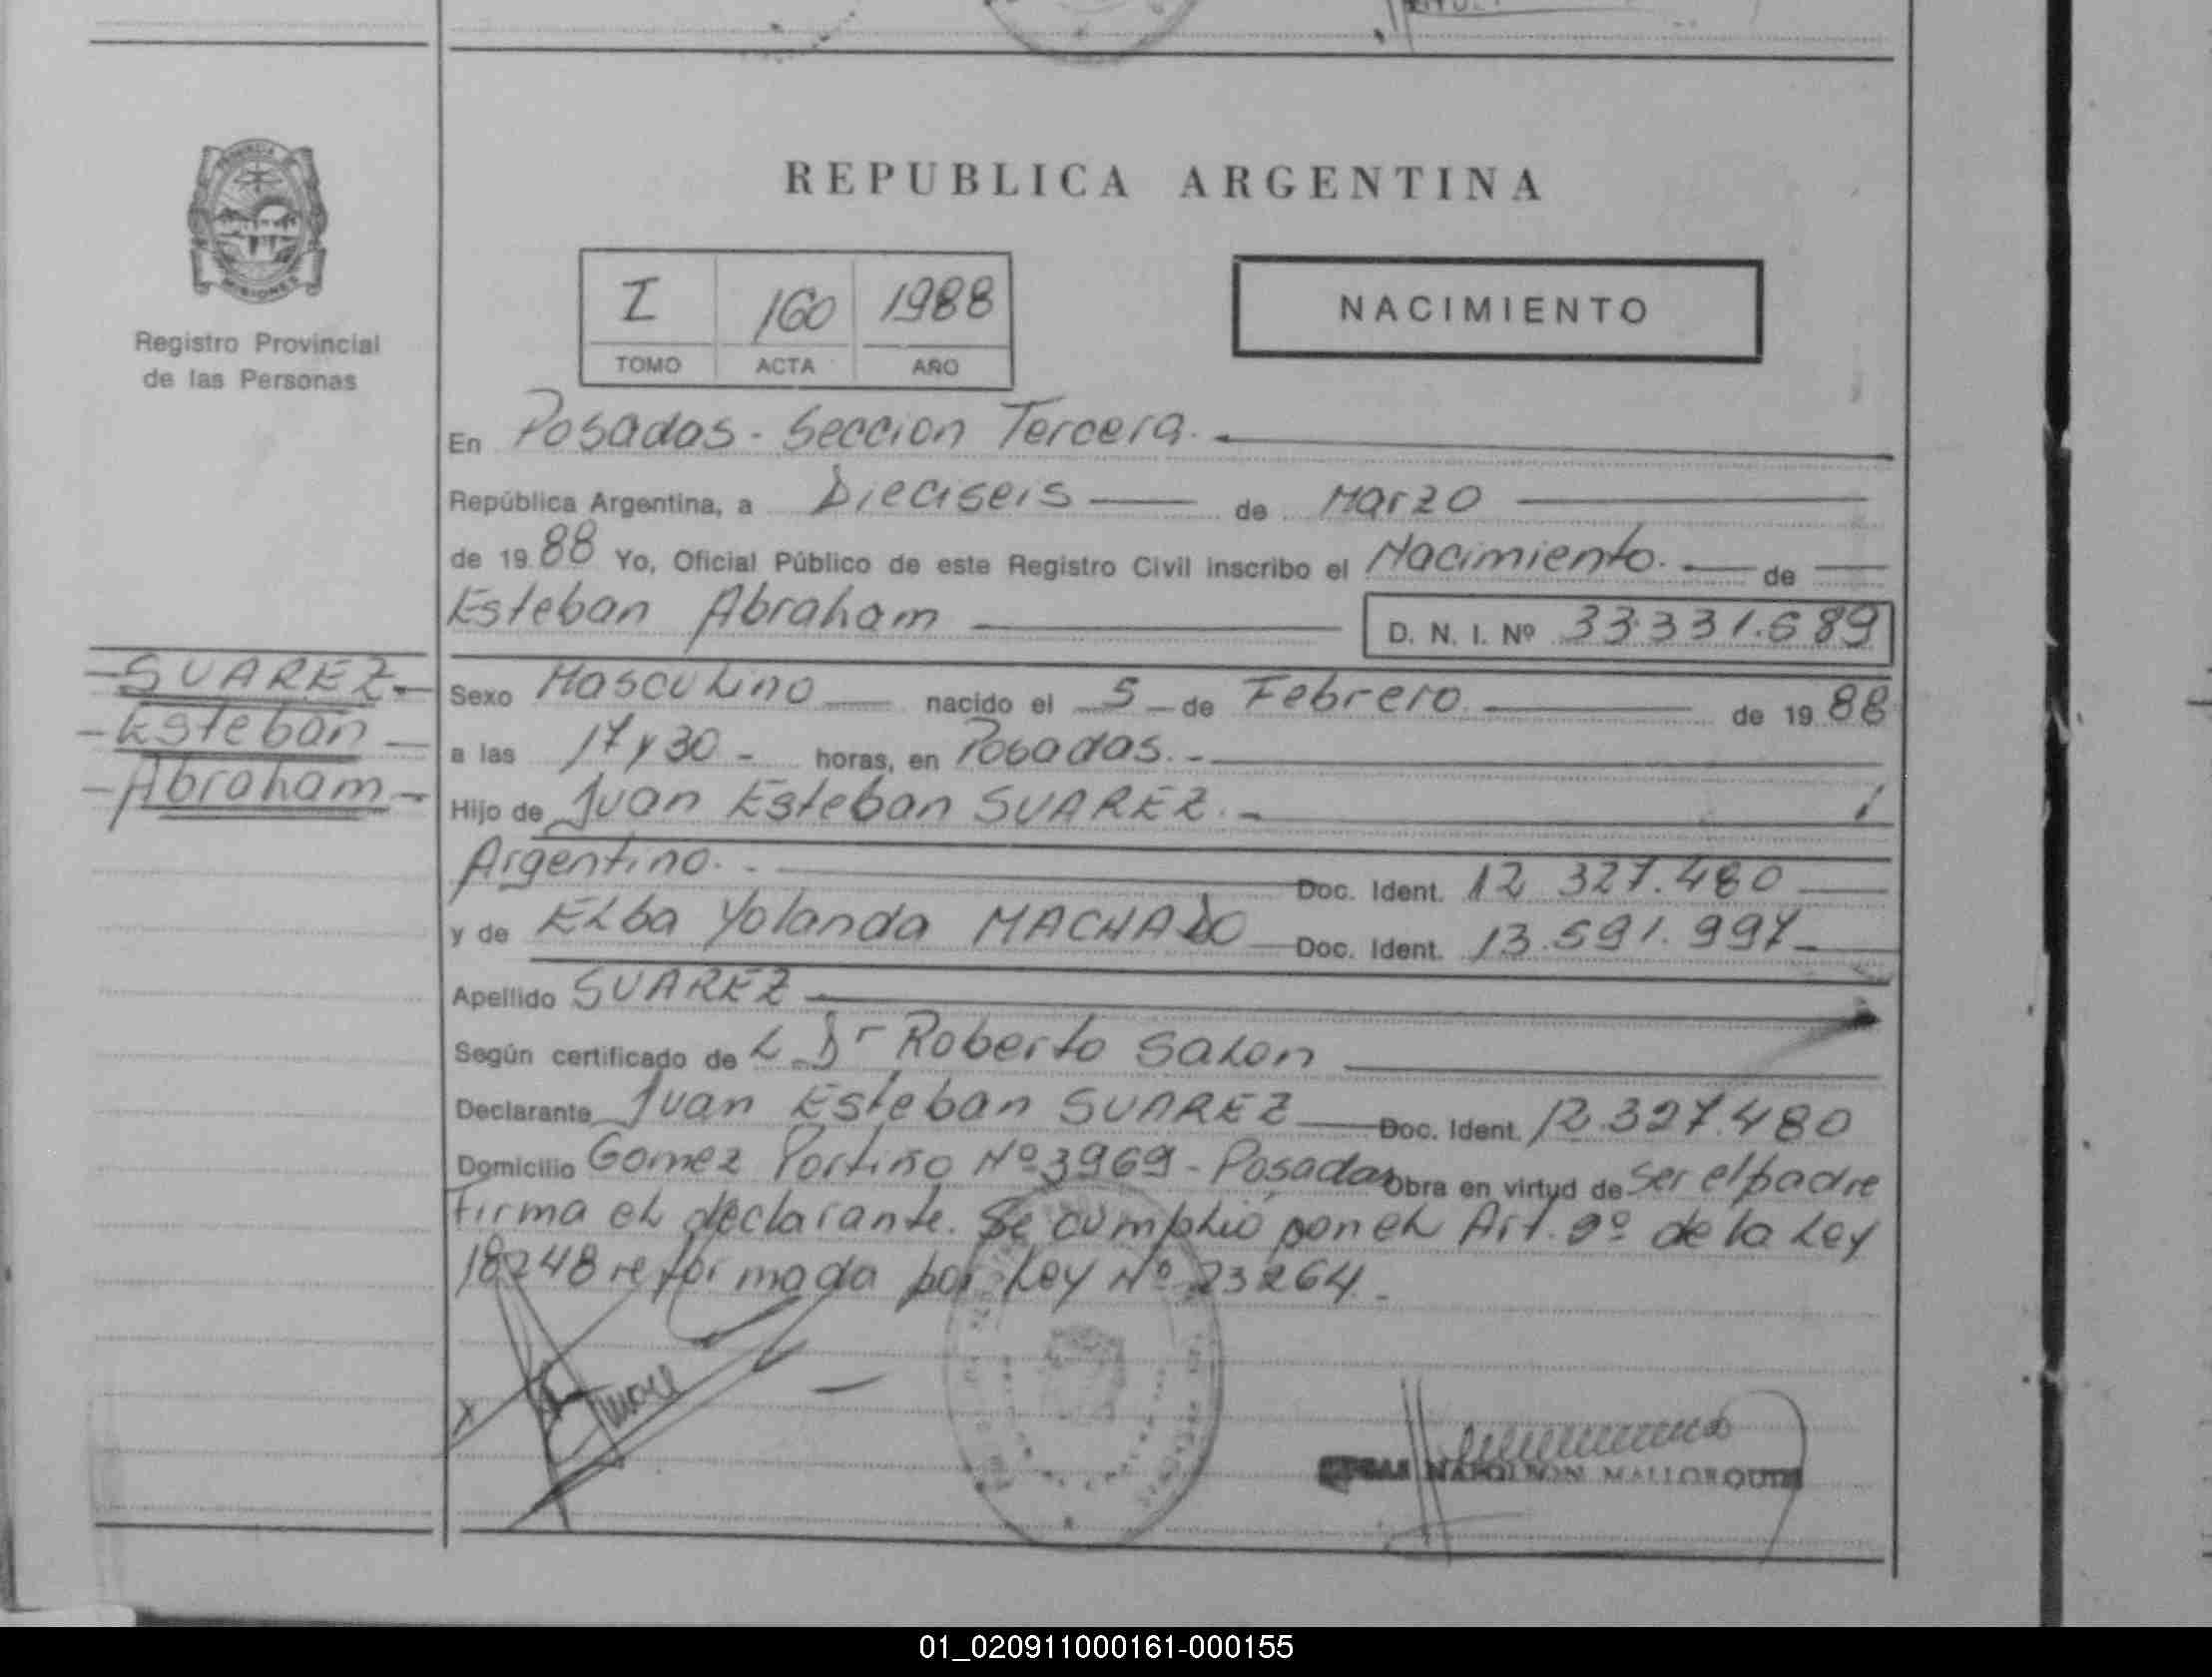 REPUBLICA ARGENTINA
PROVINCIA
MISIONES
Registro Provincial
de las Personas
I 160 1988
TOMO ACTA AÑO
NACIMIENTO
En Posadas - Seccion Tercera.
República Argentina, a Dieciseis de Marzo
de 19 88 Yo, Oficial Público de este Registro Civil inscribo el Nacimiento. de
Esteban Abraham D. N. I. Nº 33.331.689
- SUAREZ -
- Esteban -
- Abraham -
Sexo Masculino nacido el 5 - de Febrero de 19 88
a las 17 y 30 - horas, en Posadas. -
Hijo de Juan Esteban SUAREZ. -
Argentino. - Doc. Ident. 12 327.480
y de Elba Yolanda MACHADO Doc. Ident. 13.591.997
Apellido SUAREZ
Según certificado de L. Dr Roberto Salon
Declarante Juan Esteban SUAREZ Doc. Ident. 12.327.480
Domicilio Gomez Portiño Nº 3969 - Posadas Obra en virtud de ser el padre
Firma el declarante. Se cumplio con el Art. 2º de la Ley
18248 reformada por Ley Nº 23264. -
NAPOLEON MALLORQUIN
01_020911000161-000155